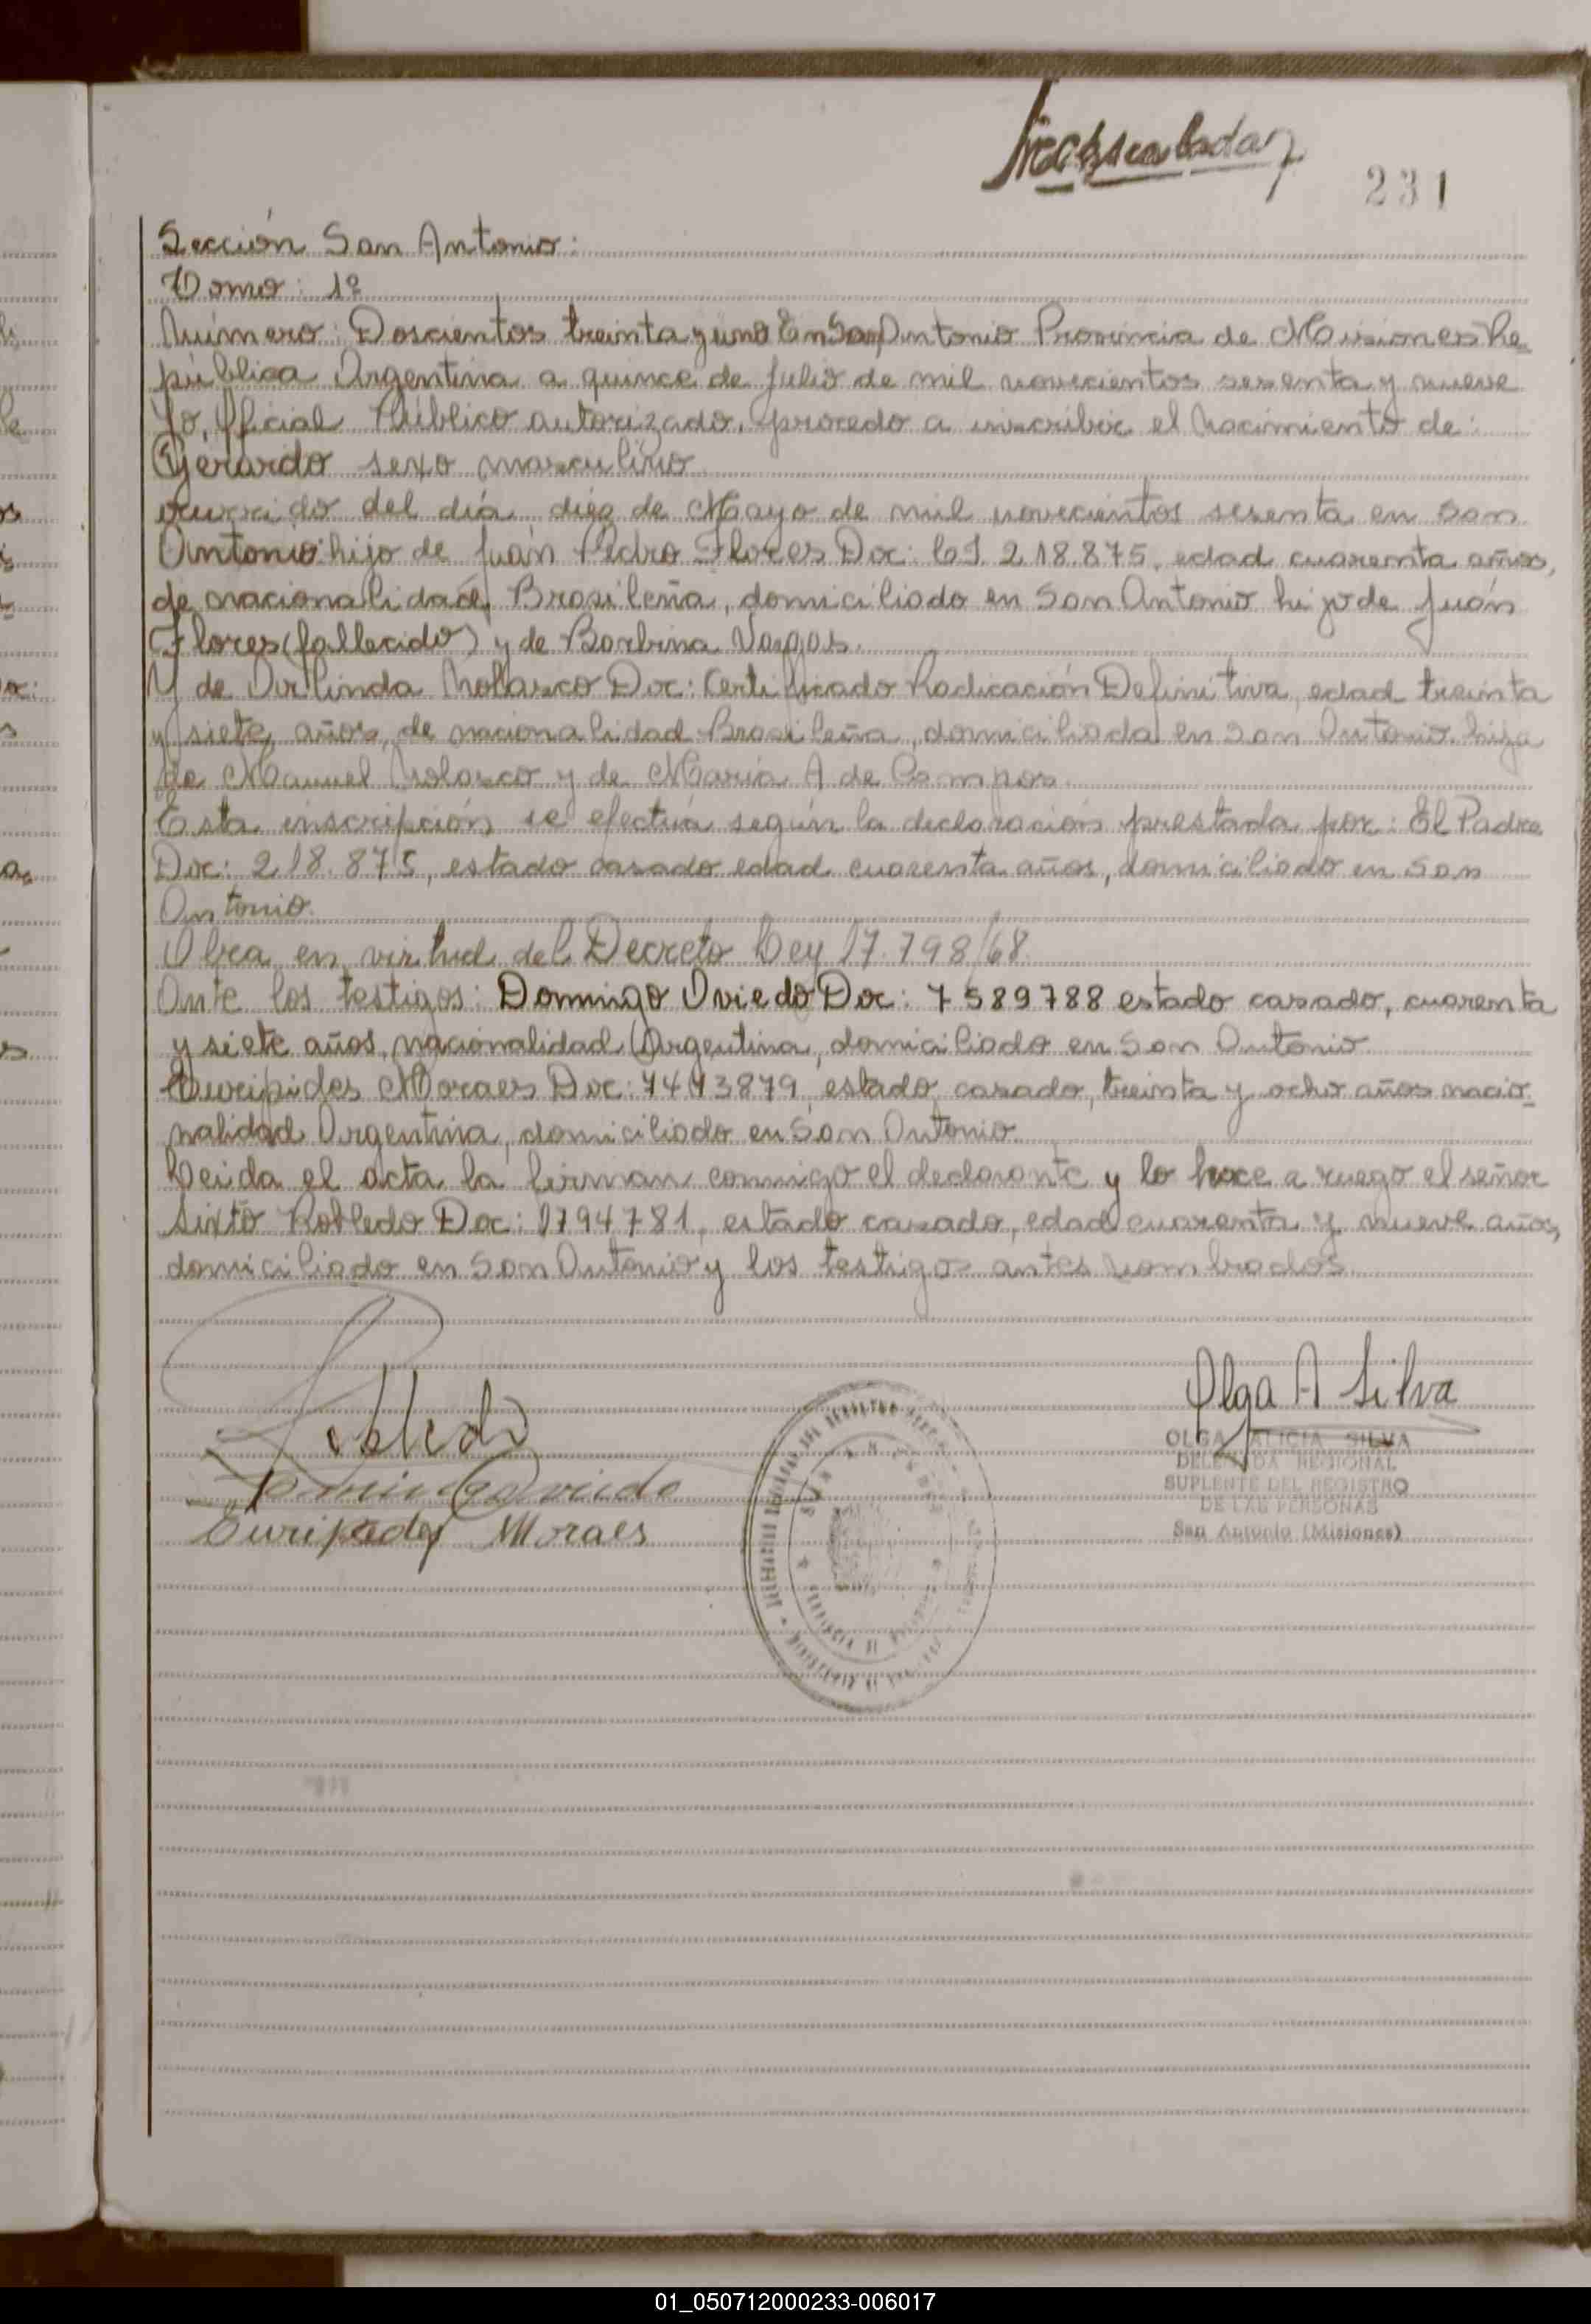 231
Sección San Antonio:
Tomo: 1º
Número: Doscientos treinta y uno En San Antonio Provincia de Misiones Re
pública Argentina a quince de Julio de mil novecientos sesenta y nueve
Yo, Oficial Público autorizado, procedo a inscribir el Nacimiento de:
Gerardo sexo masculino
ocurrido del día diez de Mayo de mil novecientos sesenta en San
Antonio hijo de Juan Pedro Flores Doc: C.I. 218.875, edad cuarenta años,
de nacionalidad Brasileña, domiciliado en San Antonio hijo de Juan
Flores (fallecido) y de Barbina Vargas.
Y de Virlinda Nolasco Doc: Certificado Radicación Definitiva, edad treinta
y siete años, de nacionalidad Brasileña, domiciliada en San Antonio hija
de Manuel Nolasco y de María A de Campos.
Esta inscripción se efectúa según la declaración prestada por: El Padre
Doc: 218.875, estado casado edad cuarenta años, domiciliado en San
Antonio.
Obra en virtud del Decreto Ley 17.798/68.
Ante los testigos: Domingo Oviedo Doc: 7589788 estado casado, cuarenta
y siete años, nacionalidad Argentina, domiciliado en San Antonio
Euripides Moraes Doc: 7473879, estado casado, treinta y ocho años nacio-
nalidad Argentina, domiciliado en San Antonio.
Leida el acta la firman conmigo el declarante y lo hace a ruego el señor
Sixto Robledo Doc: 1794781, estado casado, edad cuarenta y nueve años,
domiciliado en San Antonio y los testigos antes nombrados.
Olga A Silva
OLGA ALICIA SILVA
DELEGADA REGIONAL
SUPLENTE DEL REGISTRO
DE LAS PERSONAS
San Antonio (Misiones)
Robledo
Domingo Oviedo
Euripides Moraes
01_050712000233-006017